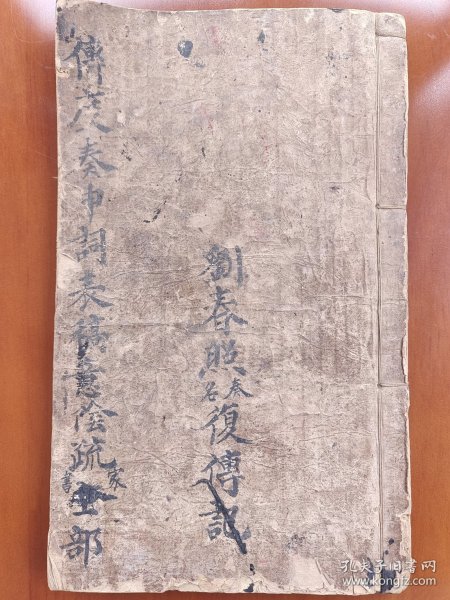 劉春照奏名復傳記
傳度奏申詞表稿意陰疏家書全部
孔夫子旧书网
www.kongfz.com